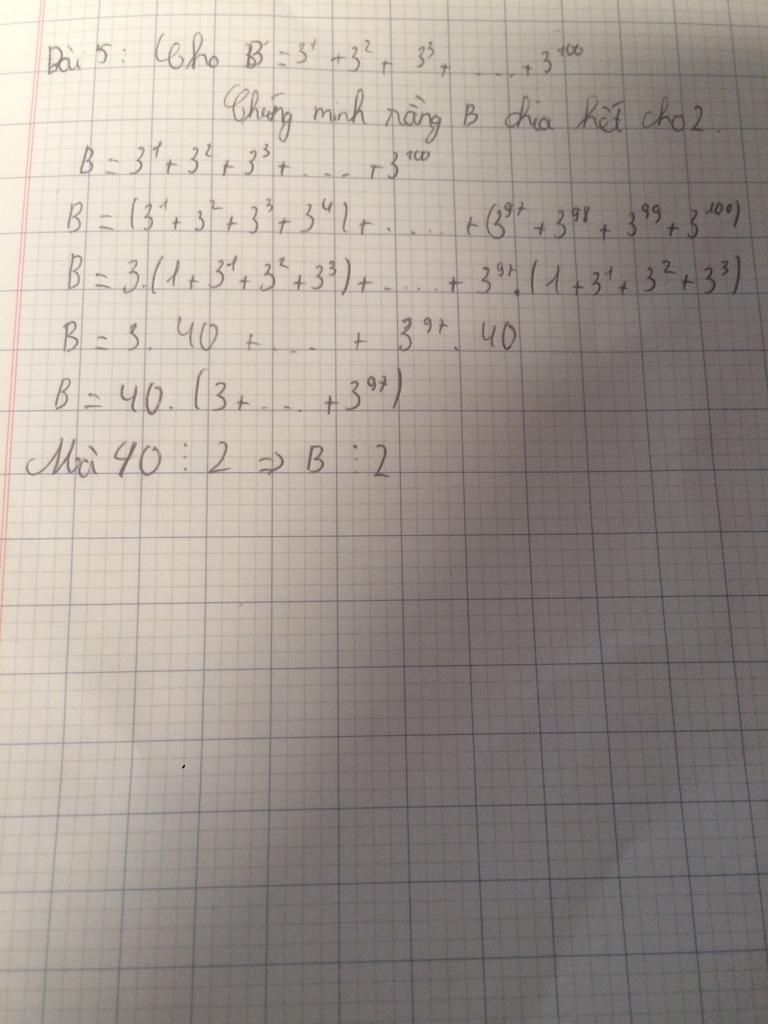 Bài 5: Cho B = 3¹ + 3² + 3³ + ..... + 3¹⁰⁰
Chứng minh rằng B chia hết cho 2.
B = 3¹ + 3² + 3³ + ..... + 3¹⁰⁰
B = (3¹ + 3² + 3³ + 3⁴) + ..... + (3⁹⁷ + 3⁹⁸ + 3⁹⁹ + 3¹⁰⁰)
B = 3.(1 + 3¹ + 3² + 3³) + ..... + 3⁹⁷.(1 + 3¹ + 3² + 3³)
B = 3. 40 + ... + 3⁹⁷. 40
B = 40. (3 + .... + 3⁹⁷)
Mà 40 ⋮ 2 => B ⋮ 2